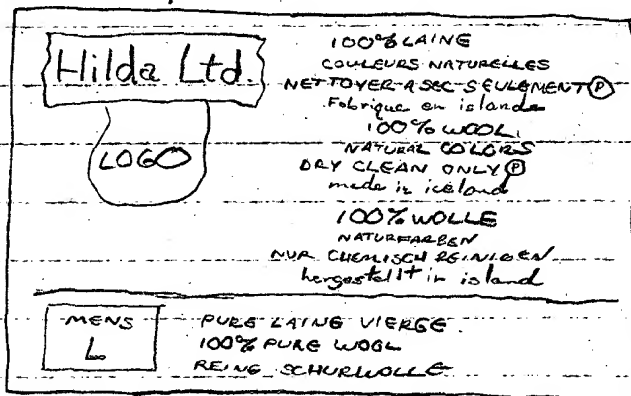 Hilda Ltd.
LOGO
100% LAINE
COULEURS NATURELLES
NETTOYER-A SEC-SEULEMENT Ⓟ
Fabrique en islande
100% WOOL
NATURAL COLORS
DRY CLEAN ONLY Ⓟ
made in iceland
100% WOLLE
NATURFARBEN
NUR CHEMISCH REINIGEN
hergestellt in island
MENS
L
PURE LAINE VIERGE
100% PURE WOOL
REINE SCHURWOLLE